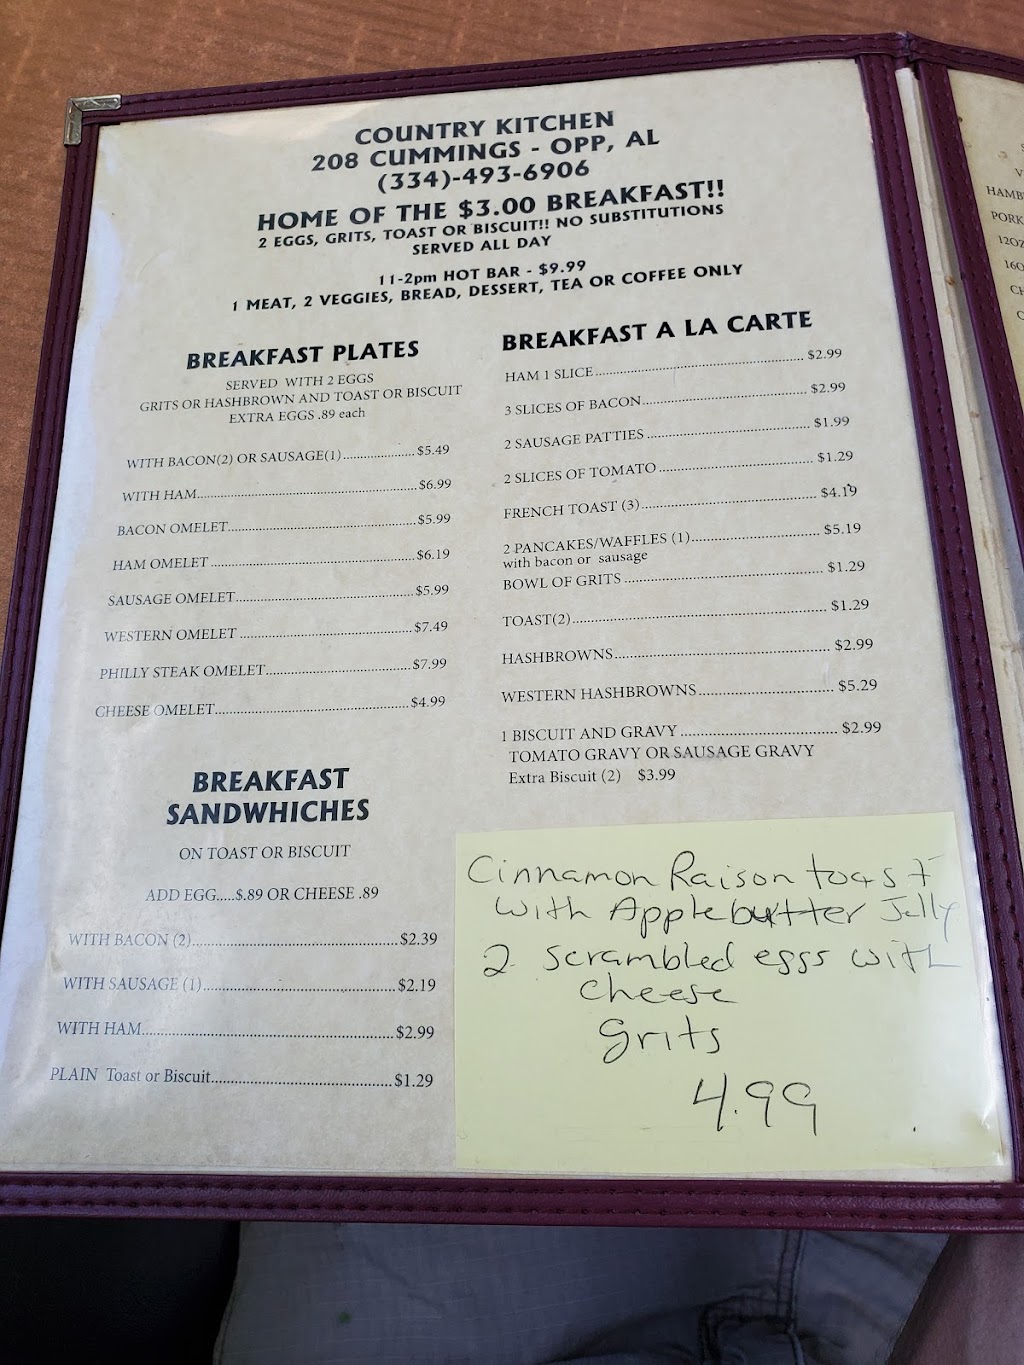 COUNTRY KITCHEN
208 CUMMINGS - OPP, AL
(334)-493-6906
HOME OF THE $3.00 BREAKFAST!!
2 EGGS, GRITS, TOAST OR BISCUIT!! NO SUBSTITUTIONS
SERVED ALL DAY
11-2pm HOT BAR - $9.99
1 MEAT, 2 VEGGIES, BREAD, DESSERT, TEA OR COFFEE ONLY
BREAKFAST PLATES
SERVED WITH 2 EGGS
GRITS OR HASHBROWN AND TOAST OR BISCUIT
EXTRA EGGS .89 each
WITH BACON(2) OR SAUSAGE(1)....................$5.49
WITH HAM....................$6.99
BACON OMELET....................$5.99
HAM OMELET....................$6.19
SAUSAGE OMELET....................$5.99
WESTERN OMELET....................$7.49
PHILLY STEAK OMELET....................$7.99
CHEESE OMELET....................$4.99
BREAKFAST
SANDWHICHES
ON TOAST OR BISCUIT
ADD EGG.....$.89 OR CHEESE .89
WITH BACON (2)....................$2.39
WITH SAUSAGE (1)....................$2.19
WITH HAM....................$2.99
PLAIN Toast or Biscuit....................$1.29
BREAKFAST A LA CARTE
HAM 1 SLICE....................$2.99
3 SLICES OF BACON....................$2.99
2 SAUSAGE PATTIES....................$1.99
2 SLICES OF TOMATO....................$1.29
FRENCH TOAST (3)....................$4.19
2 PANCAKES/WAFFLES (1)....................$5.19
with bacon or sausage
BOWL OF GRITS....................$1.29
TOAST(2)....................$1.29
HASHBROWNS....................$2.99
WESTERN HASHBROWNS....................$5.29
1 BISCUIT AND GRAVY....................$2.99
TOMATO GRAVY OR SAUSAGE GRAVY
Extra Biscuit (2) $3.99
Cinnamon Raison toast
with Applebutter Jelly
2 scrambled eggs with
cheese
grits
4.99
HAMB
PORK
12OZ
16O